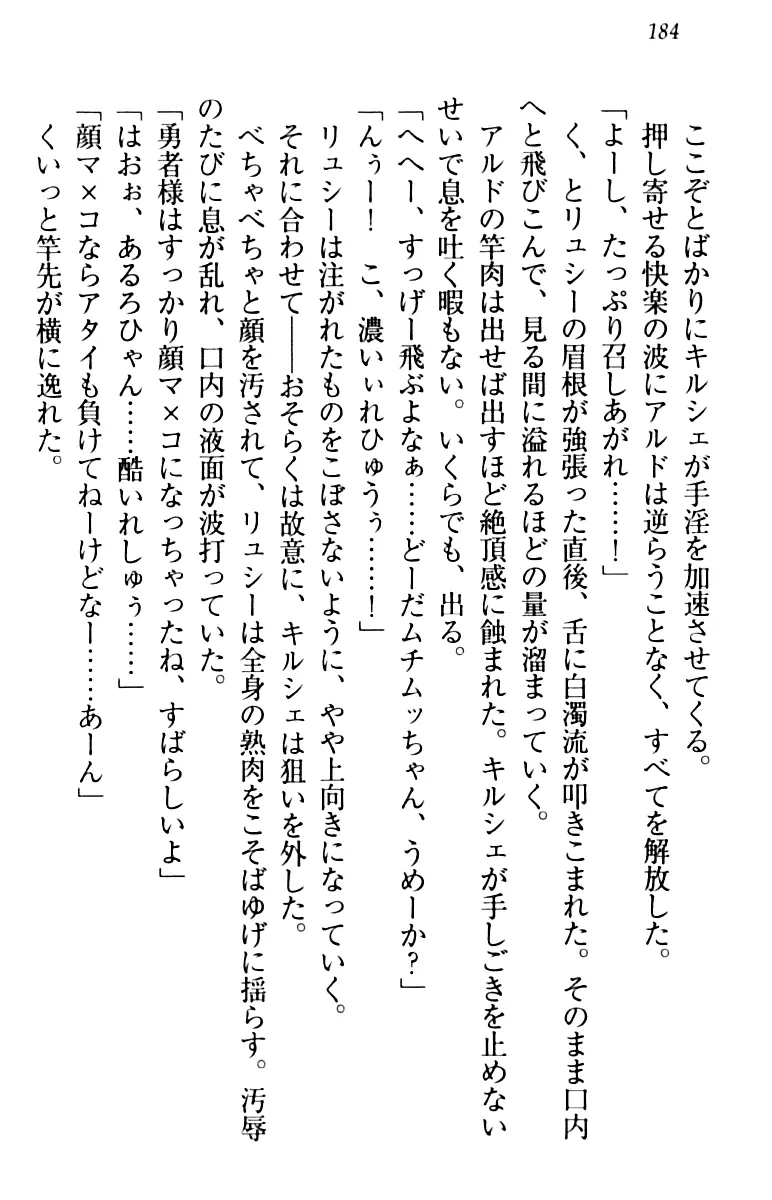 184
ここぞとばかりにキルシェが手淫を加速させてくる。
押し寄せる快楽の波にアルドは逆らうことなく、すべてを解放した。
「よーし、たっぷり召しあがれ……！」
く、とリュシーの眉根が強張った直後、舌に白濁流が叩きこまれた。そのまま口内
へと飛びこんで、見る間に溢れるほどの量が溜まっていく。
アルドの竿肉は出せば出すほど絶頂感に蝕まれた。キルシェが手しごきを止めない
せいで息を吐く暇もない。いくらでも、出る。
「へへー、すっげー飛ぶよなぁ……どーだムチムッちゃん、うめーか？」
「んぅー！　こ、濃いぃれひゅうぅ……！」
リュシーは注がれたものをこぼさないように、やや上向きになっていく。
それに合わせて――おそらくは故意に、キルシェは狙いを外した。
べちゃべちゃと顔を汚されて、リュシーは全身の熟肉をこそばゆげに揺らす。汚辱
のたびに息が乱れ、口内の液面が波打っていた。
「勇者様はすっかり顔マ×コになっちゃったね、すばらしいよ」
「はおぉ、あるろひゃん……酷いれしゅぅ……」
「顔マ×コならアタイも負けてねーけどなー……あーん」
くいっと竿先が横に逸れた。